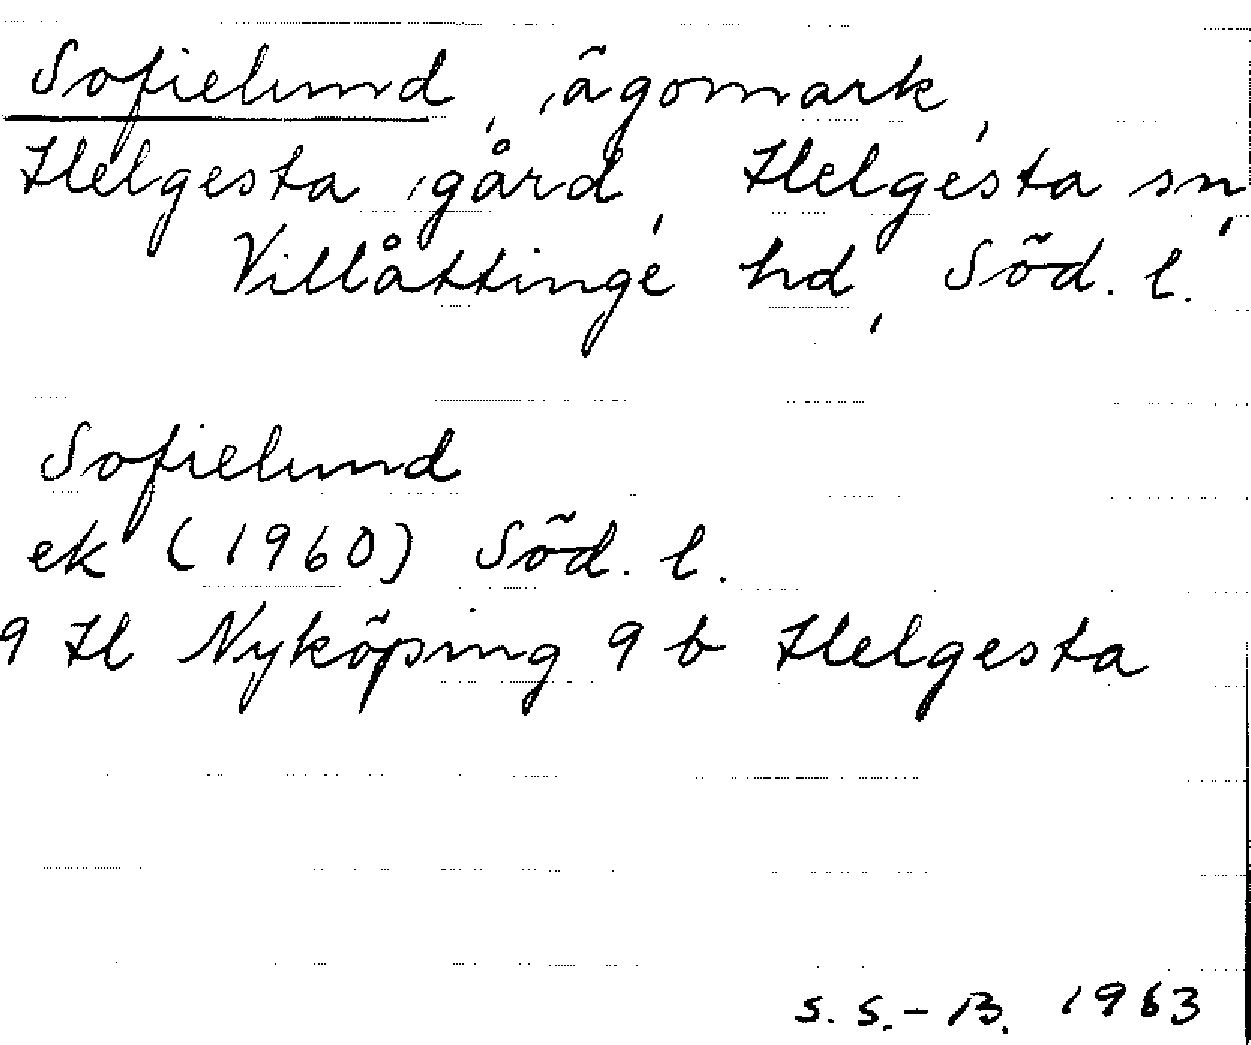 Sofielund, ägomark,
Helgesta gård, Helgesta sn,
Villåttinge hd, Söd. l.
Sofielund
ek (1960) Söd. l.
9 H Nyköping 9 b Helgesta
S. S.-B. 1963